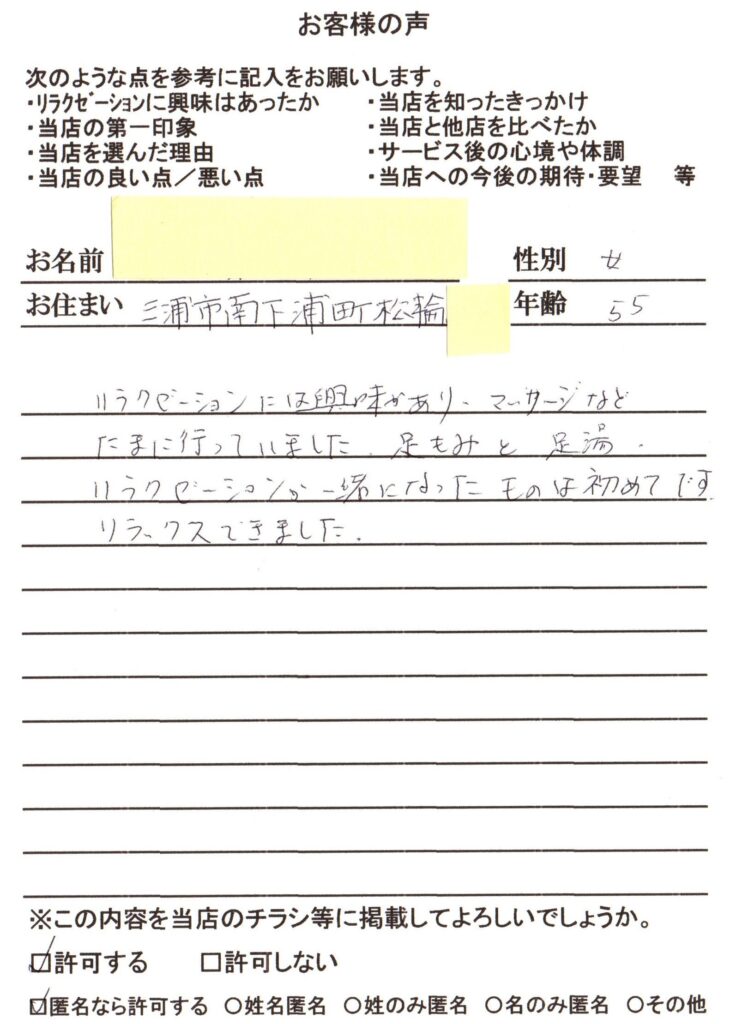 お客様の声
次のような点を参考に記入をお願いします。
・ﾘﾗｸｾﾞｰｼｮﾝに興味はあったか ・当店を知ったきっかけ
・当店の第一印象 ・当店と他店を比べたか
・当店を選んだ理由 ・サービス後の心境や体調
・当店の良い点／悪い点 ・当店への今後の期待・要望 等
お名前 性別 女
お住まい 三浦市南下浦町松輪 年齢 55
リラクゼーションには興味があり、マッサージなど
たまに行っていました。足もみと 足湯、
リラクゼーションが一緒になったものは初めてです
リラックスできました。
※この内容を当店のチラシ等に掲載してよろしいでしょうか。
☑許可する □許可しない
☑匿名なら許可する ○姓名匿名 ○姓のみ匿名 ○名のみ匿名 ○その他